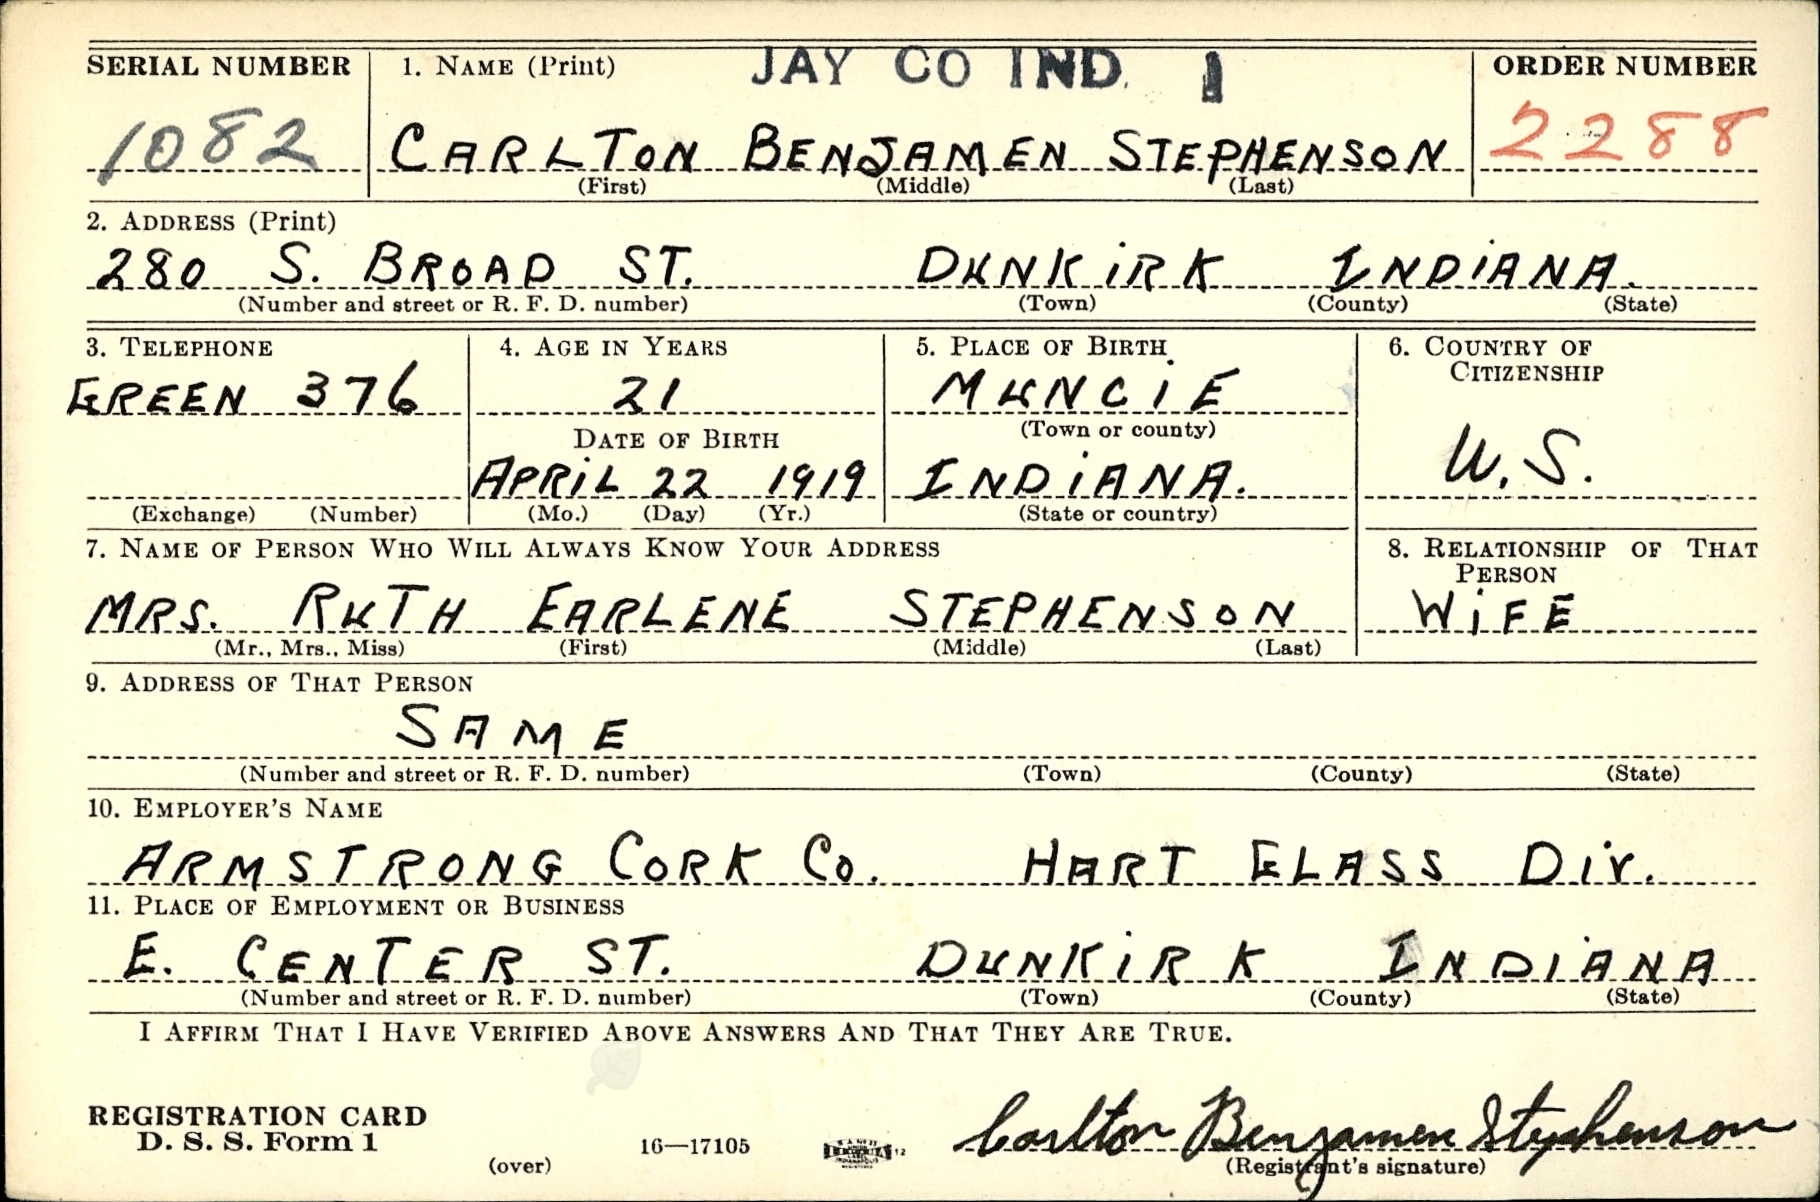 JAY CO IND. 1
SERIAL NUMBER 1. NAME (Print) ORDER NUMBER
1082 CARLTON BENJAMEN STEPHENSON 2288
(First) (Middle) (Last)
2. ADDRESS (Print)
280 S. BROAD ST. DUNKIRK INDIANA.
(Number and street or R. F. D. number) (Town) (County) (State)
3. TELEPHONE 4. AGE IN YEARS 5. PLACE OF BIRTH 6. COUNTRY OF
CITIZENSHIP
GREEN 376 21 MUNCIE
(Town or county)
DATE OF BIRTH
APRIL 22 1919 INDIANA. U.S.
(Exchange) (Number) (Mo.) (Day) (Yr.) (State or country)
7. NAME OF PERSON WHO WILL ALWAYS KNOW YOUR ADDRESS 8. RELATIONSHIP OF THAT
PERSON
MRS. RUTH EARLENE STEPHENSON WIFE
(Mr., Mrs., Miss) (First) (Middle) (Last)
9. ADDRESS OF THAT PERSON
SAME
(Number and street or R. F. D. number) (Town) (County) (State)
10. EMPLOYER'S NAME
ARMSTRONG CORK CO. HART GLASS DIV.
11. PLACE OF EMPLOYMENT OR BUSINESS
E. CENTER ST. DUNKIRK INDIANA
(Number and street or R. F. D. number) (Town) (County) (State)
I AFFIRM THAT I HAVE VERIFIED ABOVE ANSWERS AND THAT THEY ARE TRUE.
REGISTRATION CARD
D. S. S. Form 1 16—17105 Carlton Benjamen Stephenson
(over) (Registrant's signature)